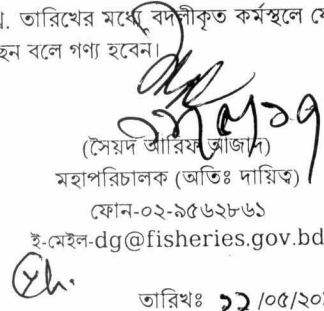 খ্রি. তারিখের মধ্যে বদলীকৃত কর্মস্থলে
ছেন বলে গণ্য হবেন।
(সৈয়দ আরিফ আজাদ)
মহাপরিচালক (অতিঃ দায়িত্ব)
ফোন-০২-৯৫৬২৮৬১
ই-মেইল-dg@fisheries.gov.bd
তারিখঃ ১১/০৫/২০